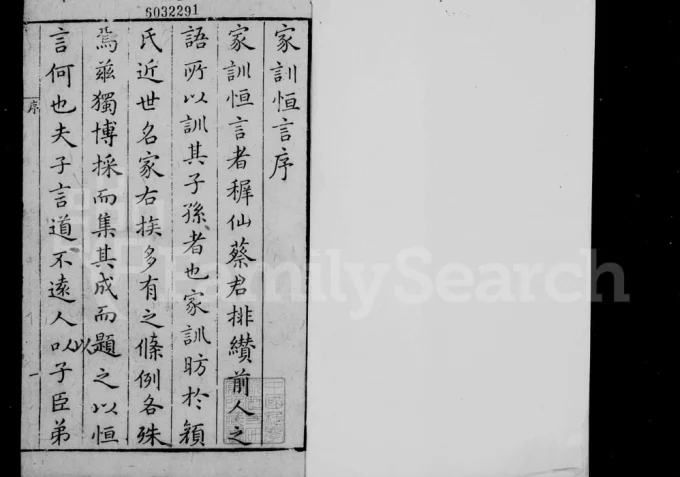 6032291
家訓恒言序
家訓恒言者穉仙蔡君排纘前人之
語所以訓其子孫者也家訓昉於顏
氏近世名家右族多有之條例各殊
焉茲獨博採而集其成而題之以恒
言何也夫子言道不遠人以子臣弟
序
一
FamilySearch